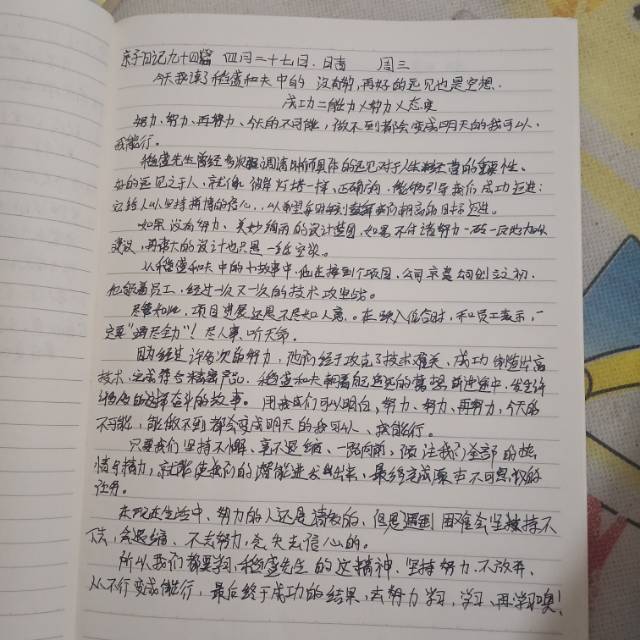 亲子日记九十四篇 四月二十七日.日晴 周三
今天我读了稻盛和夫中的 没有努,再好的远见也是空想.
成功=能力×努力×态度
努力、努力、再努力、今天的不可能,做不到都会变成明天的我可以、
我能行。
稻盛先生曾经多次强调清晰而具体的远见对于人生和经营的重要性、
好的远见之于人,就像 灯塔一样,正确的,能够引导我们成功远进;
它给人以坚持拼搏的信心,以希望
如果没有努力、美妙绝而的设计蓝图,如果不付诸努力一砖一瓦地加以
建设,再宏大的设计也只是一纸空谈。
从稻盛和夫中的小故事中,他在接到个项目,公司京瓷公司创立之初.
他带着员工,经过一次又一次的技术攻坚战。
尽管如此,项目进展还是不尽如人意。在 时,和员工表示,一
定要“竭尽全力”!尽人事、听天命。
因为经过许多次的努力,他们终于攻克了技术难关,成功 出高
技术、完成符合 产品. 稻盛和夫朝着 远的 中,发生许
的故事。用 我们可以明白,努力、努力、再努力,今天的
不可能,能做不到都会变成明天的我可以、我能行。
只要我们坚持不懈、毫不退缩、一路向前,倾注我们全部的热
情与精力,就能使我们的潜能迸发出来,最终完成原本不可思议的
任务。
在现在生活中、努力的人还是 的、但是遇到困难会坚持不
下去,会退缩、不去努力,会失去信心的。
所以我们都要 稻盛先生的这精神、坚持努力、不放弃、
从不行变成能行,最后终于成功的结果,去努力学习,学习、再学习噢!